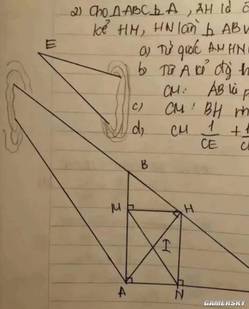 2) Cho ΔABC ⊥ A, AH là đ
kẻ HM, HN lần ⊥ AB v
a) Tứ giác AMHN
b Từ A kẻ đg
CM: AB là p
c) CM: BH
d) CM 1/CE +
E
B
M H
I
A N
GAMERSKY